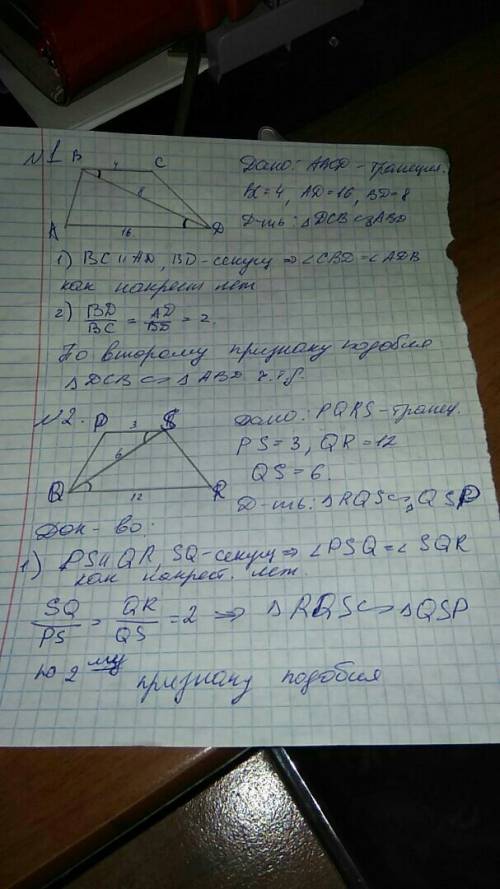 №1
B 4 C
8
A 16 D
Дано: ABCD - трапеция.
BC=4, AD=16, BD=8
Д-ть: △DCB ∾ △ABD
1) BC ∥ AD, BD - секущ ⇒ ∠CBD = ∠ADB
как накрест леж
2) BD/BC = AD/BD = 2.
По второму признаку подобия
△DCB ∾ △ABD ч.т.д.
№2.
P 3 S
6
Q 12 R
Дано: PQRS - трапец.
PS = 3, QR = 12
QS = 6.
Д-ть: △RQS ∾ △QSP
Док-во:
1) PS ∥ QR, SQ - секущ ⇒ ∠PSQ = ∠SQR
как накрест. леж.
SQ/PS = QR/QS = 2 ⇒ △RQS ∾ △QSP
по 2му признаку подобия